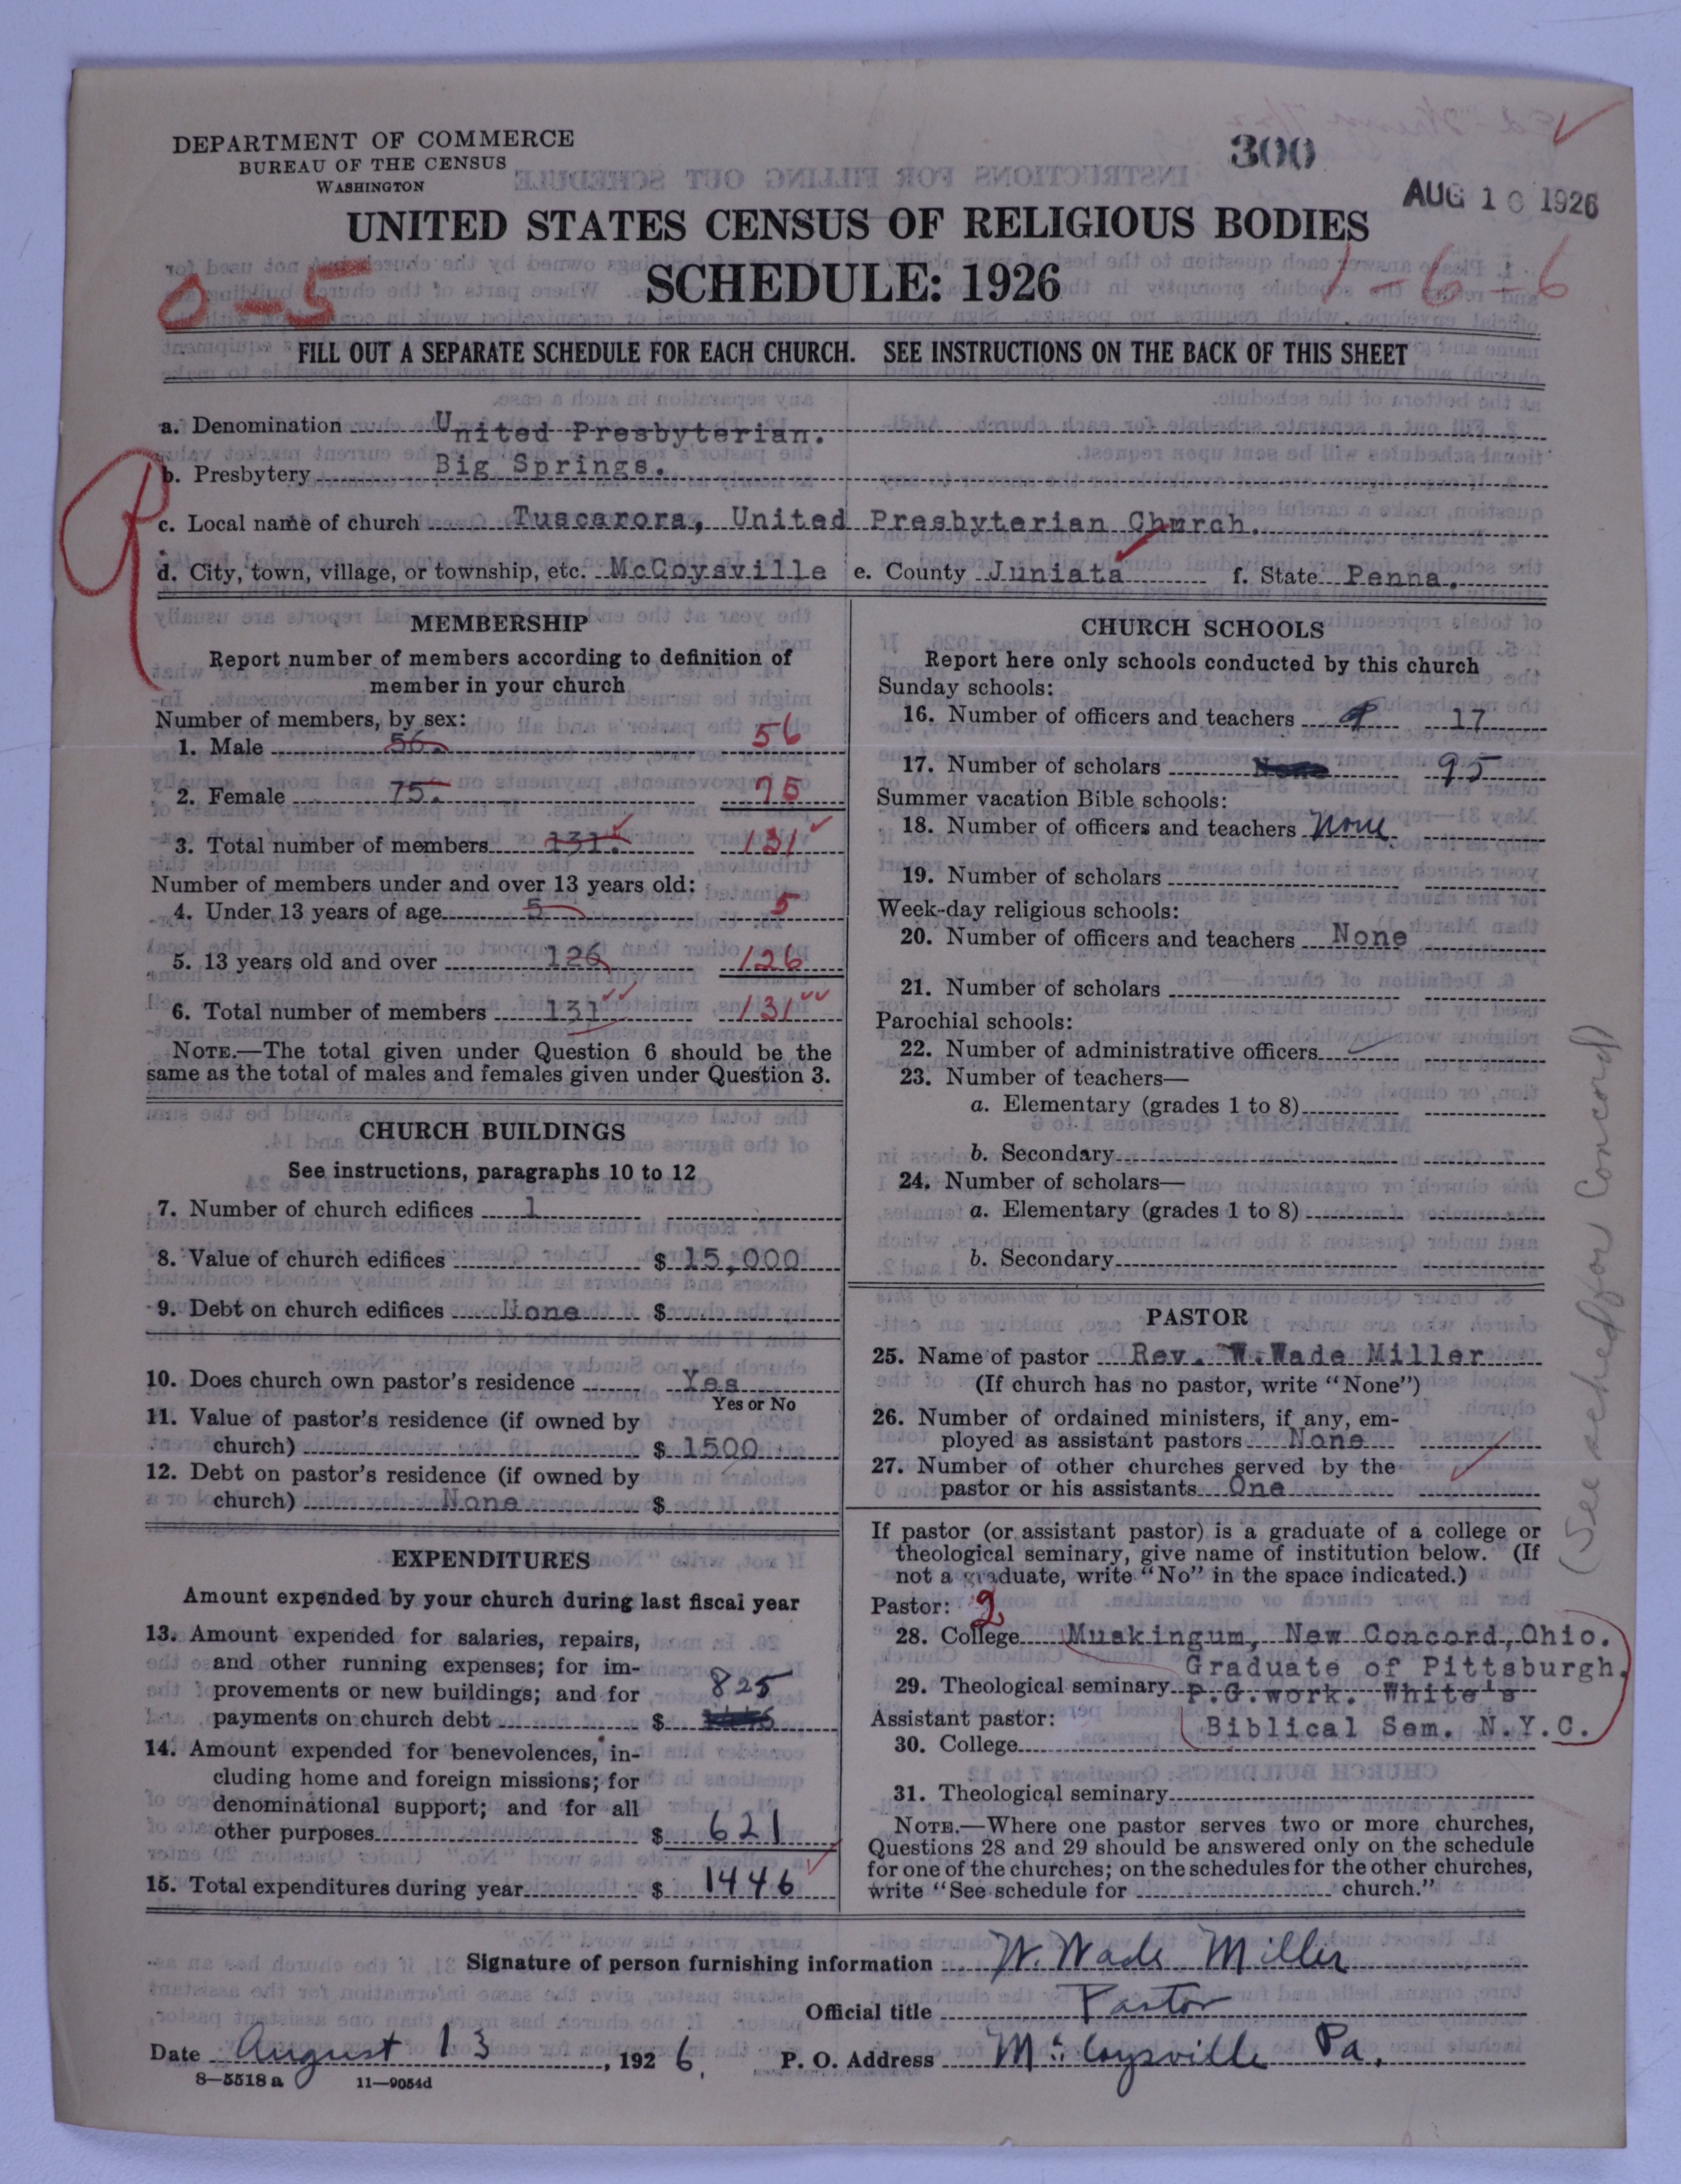 DEPARTMENT OF COMMERCE
BUREAU OF THE CENSUS
WASHINGTON
300
AUG 1 1926
UNITED STATES CENSUS OF RELIGIOUS BODIES
SCHEDULE: 1926
0-5
1-6-6
FILL OUT A SEPARATE SCHEDULE FOR EACH CHURCH. SEE INSTRUCTIONS ON THE BACK OF THIS SHEET
a. Denomination United Presbyterian.
b. Presbytery Big Springs.
c. Local name of church Tuscarora, United Presbyterian Church.
d. City, town, village, or township, etc. McCoysville e. County Juniata f. State Penna.
MEMBERSHIP
Report number of members according to definition of
member in your church
Number of members, by sex:
1. Male 56. 56
2. Female 75. 75
3. Total number of members 131. 131
Number of members under and over 13 years old:
4. Under 13 years of age 5 5
5. 13 years old and over 126 126
6. Total number of members 131 131
NOTE.—The total given under Question 6 should be the
same as the total of males and females given under Question 3.
CHURCH BUILDINGS
See instructions, paragraphs 10 to 12
7. Number of church edifices 1
8. Value of church edifices $ 15,000
9. Debt on church edifices None $
10. Does church own pastor's residence Yes
Yes or No
11. Value of pastor's residence (if owned by
church) $ 1500
12. Debt on pastor's residence (if owned by
church) None $
EXPENDITURES
Amount expended by your church during last fiscal year
13. Amount expended for salaries, repairs,
and other running expenses; for im-
provements or new buildings; and for 825
payments on church debt $
14. Amount expended for benevolences, in-
cluding home and foreign missions; for
denominational support; and for all
other purposes $ 621
15. Total expenditures during year $ 1446
CHURCH SCHOOLS
Report here only schools conducted by this church
Sunday schools:
16. Number of officers and teachers 17
17. Number of scholars None 95
Summer vacation Bible schools:
18. Number of officers and teachers None
19. Number of scholars
Week-day religious schools:
20. Number of officers and teachers None
21. Number of scholars
Parochial schools:
22. Number of administrative officers
23. Number of teachers—
a. Elementary (grades 1 to 8)
b. Secondary
24. Number of scholars—
a. Elementary (grades 1 to 8)
b. Secondary
PASTOR
25. Name of pastor Rev. W.Wade Miller
(If church has no pastor, write "None")
26. Number of ordained ministers, if any, em-
ployed as assistant pastors None
27. Number of other churches served by the
pastor or his assistants One
If pastor (or assistant pastor) is a graduate of a college or
theological seminary, give name of institution below. (If
not a graduate, write "No" in the space indicated.)
Pastor: 2
28. College Muskingum, New Concord, Ohio.
Graduate of Pittsburgh.
29. Theological seminary P.G.work. White's
Assistant pastor: Biblical Sem. N.Y.C.
30. College
31. Theological seminary
NOTE.—Where one pastor serves two or more churches,
Questions 28 and 29 should be answered only on the schedule
for one of the churches; on the schedules for the other churches,
write "See schedule for church."
(See sched for Concord)
Signature of person furnishing information W. Wade Miller
Official title Pastor
Date August 13, 1926. P. O. Address McCoysville Pa.
8—5518 a 11—9054d